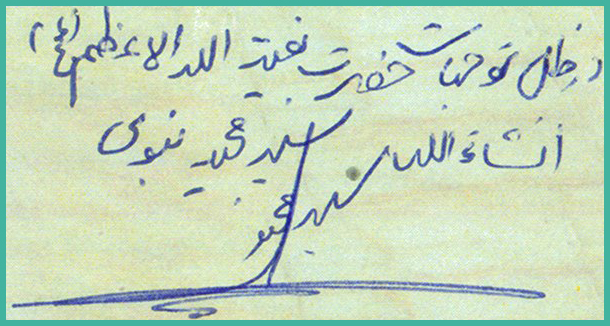 در ظل توجهات حضرت بقیة الله الاعظم (عج)
انشاءالله سید مجید نبوی
سید مجید